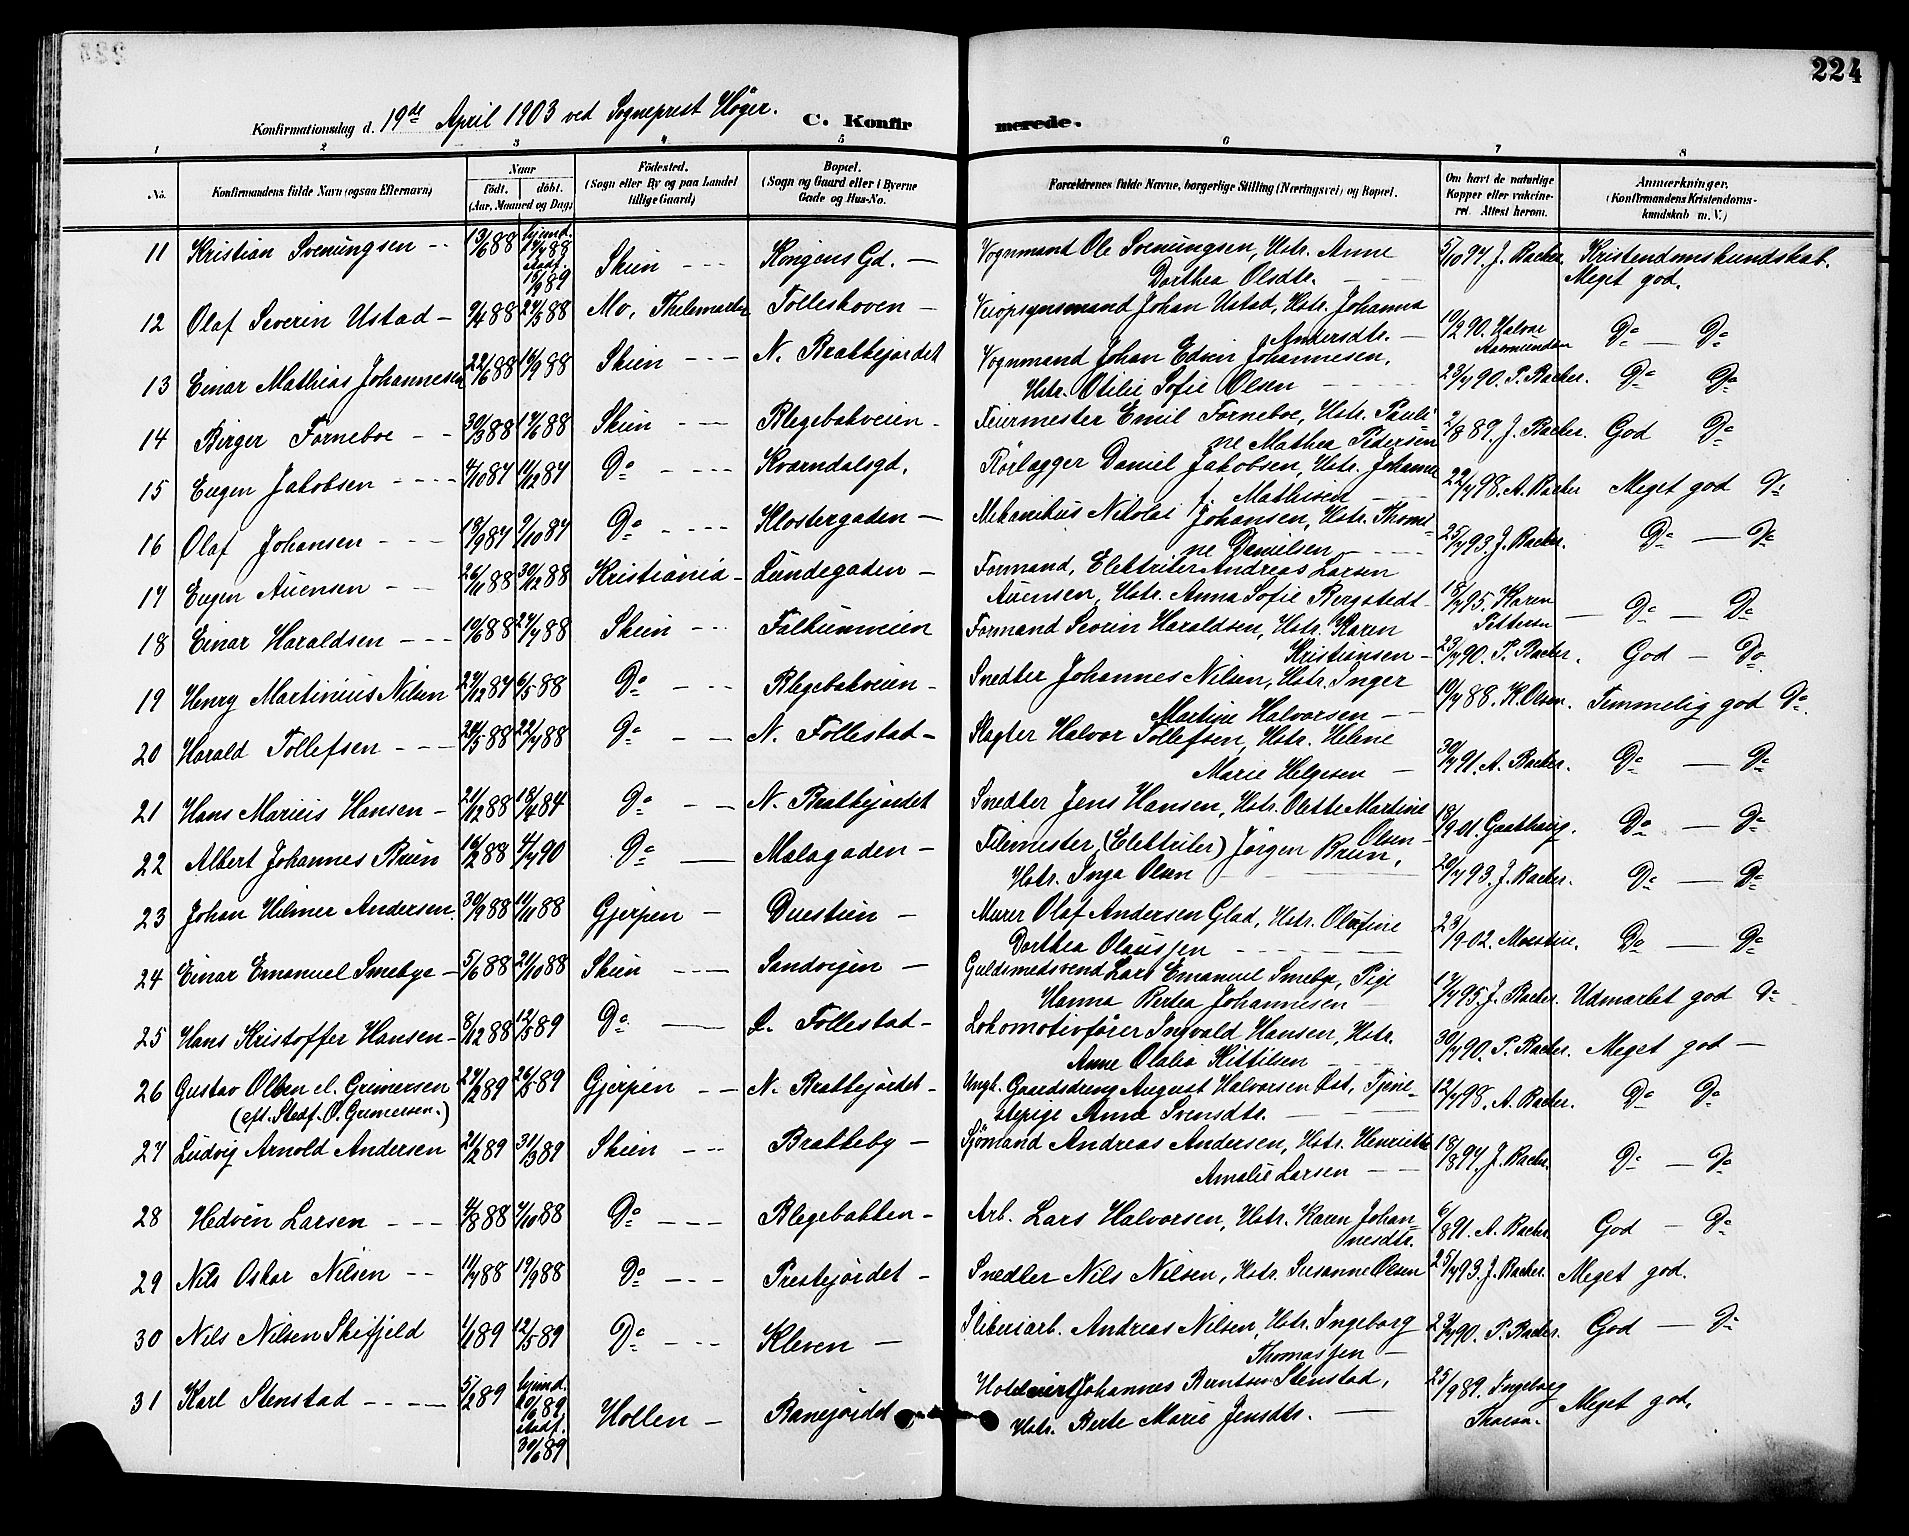 224
Konfirmationsdag d. 19de April 1903 ved Sogneprest Höyer. C. Konfirmerede.
1 2 3 4 5 6 7 8
No. Konfirmandens fulde Navn (ogsaa Efternavn) Naar födt. döbt. (Aar, Maaned og Dag) Födested. (Sogn eller By og paa Landet tillige Gaard) Bopæl. (Sogn og Gaard eller i Byerne Gade og Hus-No. Forældrenes fulde Navne, borgerlige Stilling (Næringsvei) og Bopæl. Om havt de naturlige Kopper eller vakcineret. Attest herom. Anmærkninger. (Konfirmandens Kristendomskundskab m. V.)
11 Kristian Svenungsen 13/6 88 hjemd. 17/7 88 stadf. 15/9 89 Skien Kongens Gd. Vognmand Ole Svenungsen, Hstr. Anne Dorthea Olsdtr. 5/10 97. J. Backer. Kristendomskundskab. Meget god.
12 Olaf Severin Ustad 9/4 88 27/5 88 Mo, Thelemarken Folleshoven Veiopsynsmand Johan Ustad, Hstr. Johanna Andersdtr. 19/9 90. Halvor Rasmussen Do Do
13 Einar Mathias Johannesen 22/6 88 16/9 88 Skien N. Brattejordet Vognmand Johan Edvin Johannesen, Hstr. Otilie Sofie Olsen 23/7 90. P. Backer. Do Do
14 Birger Forneboe 30/3 88 17/6 88 Skien Blegebakveien Feiermester Emil Forneboe, Hstr. Pauline Mathea Pedersen 2/8 89. J. Backer. God Do
15 Eugen Jakobsen 4/10 87 11/12 87 Do Kværndalsgd. Rörlægger Daniel Jakobsen, Hstr. Johanne f. Mathisen 22/7 98. A. Backer Meget god Do
16 Olaf Johansen 19/9 87 9/10 87 Do Klostergaden Mekanikus Nikolai Johansen, Hstr. Thomine Danielsen 25/7 93. J. Backer. Do Do
17 Eugen Auensen 26/11 88 30/12 88 Kristiania Lundegaden Formand, Elektriker Andreas Larsen Auensen, Hstr. Anna Sofie Bergstedt 18/7 95. Karen Petterson Do Do
18 Einar Haraldsen 19/6 88 27/7 88 Skien Falkumveien Formand Severin Haraldsen, Hstr. Karen Kristiansen 23/7 90. P. Backer. God Do
19 Henry Martinius Nilsen 27/12 87 6/5 88 Do Blegebakveien Snedker Johannes Nilsen, Hstr. Inger Martine Halvorsen 19/7 88. K. Olsen. Temmelig god Do
20 Harald Tollefsen 20/5 88 22/7 88 Do N. Follestad Slagter Halvor Tollefsen, Hstr. Helene Marie Helgesen 30/7 91. A. Backer. Do Do
21 Hans Marius Hansen 21/12 88 18/4 84 Do N. Brattejördet Snedker Jens Hansen, Hstr. Olette Martine Olsen 18/9 01. Do Do
22 Albert Johannes Brun 16/2 88 4/7 90 Do Malagaden Filemester, (Elektriker) Jörgen Brun, Hstr. Inga Olsen 20/7 93. J. Backer. Do Do
23 Johan Hilmer Andersen. 30/9 88 11/11 88 Gjerpen Duestien Murer Olaf Andersen Glad, Hstr. Olufine Dorthea Olaussen 23/9 02. Do Do
24 Einar Emanuel Smebye 5/6 88 21/10 88 Skien Sandvigen Guldsmedsvend Lars Emanuel Smebye, Pige Hanna Bertea Johannesen 17/7 95. J. Backer. Udmærket god Do
25 Hans Kristoffer Hansen 8/12 88 12/5 89 Do S. Follestad Lokomotivförer Ingvald Hansen, Hstr. Anne Olaba Kittilsen 30/7 90. P. Backer. Meget god
26 Gustav Olsen el. Gunersen (eft. Stedf. O. Gunersen.) 27/2 89 26/5 89 Gjerpen N. Brattejördet Ungk. Gaardsdreng August Halvorsen Ost, Tjenestepige Anne Svensdtr. 12/7 98. A. Backer. Do Do
27 Ludvig Arnold Andersen 21/2 89 31/3 89 Skien Bratteby Sjömand Andreas Andersen, Hstr. Henriette Amalie Larsen 18/8 97. J. Backer. Do Do
28 Hedvin Larsen 4/8 88 7/10 88 Do Blegebakken Arb. Lars Halvorsen, Hstr. Karen Johannesdtr. 6/8 91. A. Backer. God Do
29 Nils Oskar Nilsen 11/7 88 19/9 88 Do Prestejördet Snedker Nils Nilsen, Hstr. Susanne Olsen 25/7 93. J. Backer. Meget god.
30 Nils Nilsen Skifjeld 1/1 89 12/5 89 Do Kleven Sliberiarb. Andreas Nilsen, Hstr. Ingeborg Thomassen 23/7 90. P. Backer. God Do
31 Karl Stenstad 5/2 89 hjemd. 20/6 89 stadf. 30/6 89 Hollen Banejördet Hotelvært Johannes Berntsen Stenstad, Hstr. Berte Marie Jensdtr. 25/9 89. Ingeborg Thoresn. Meget god.